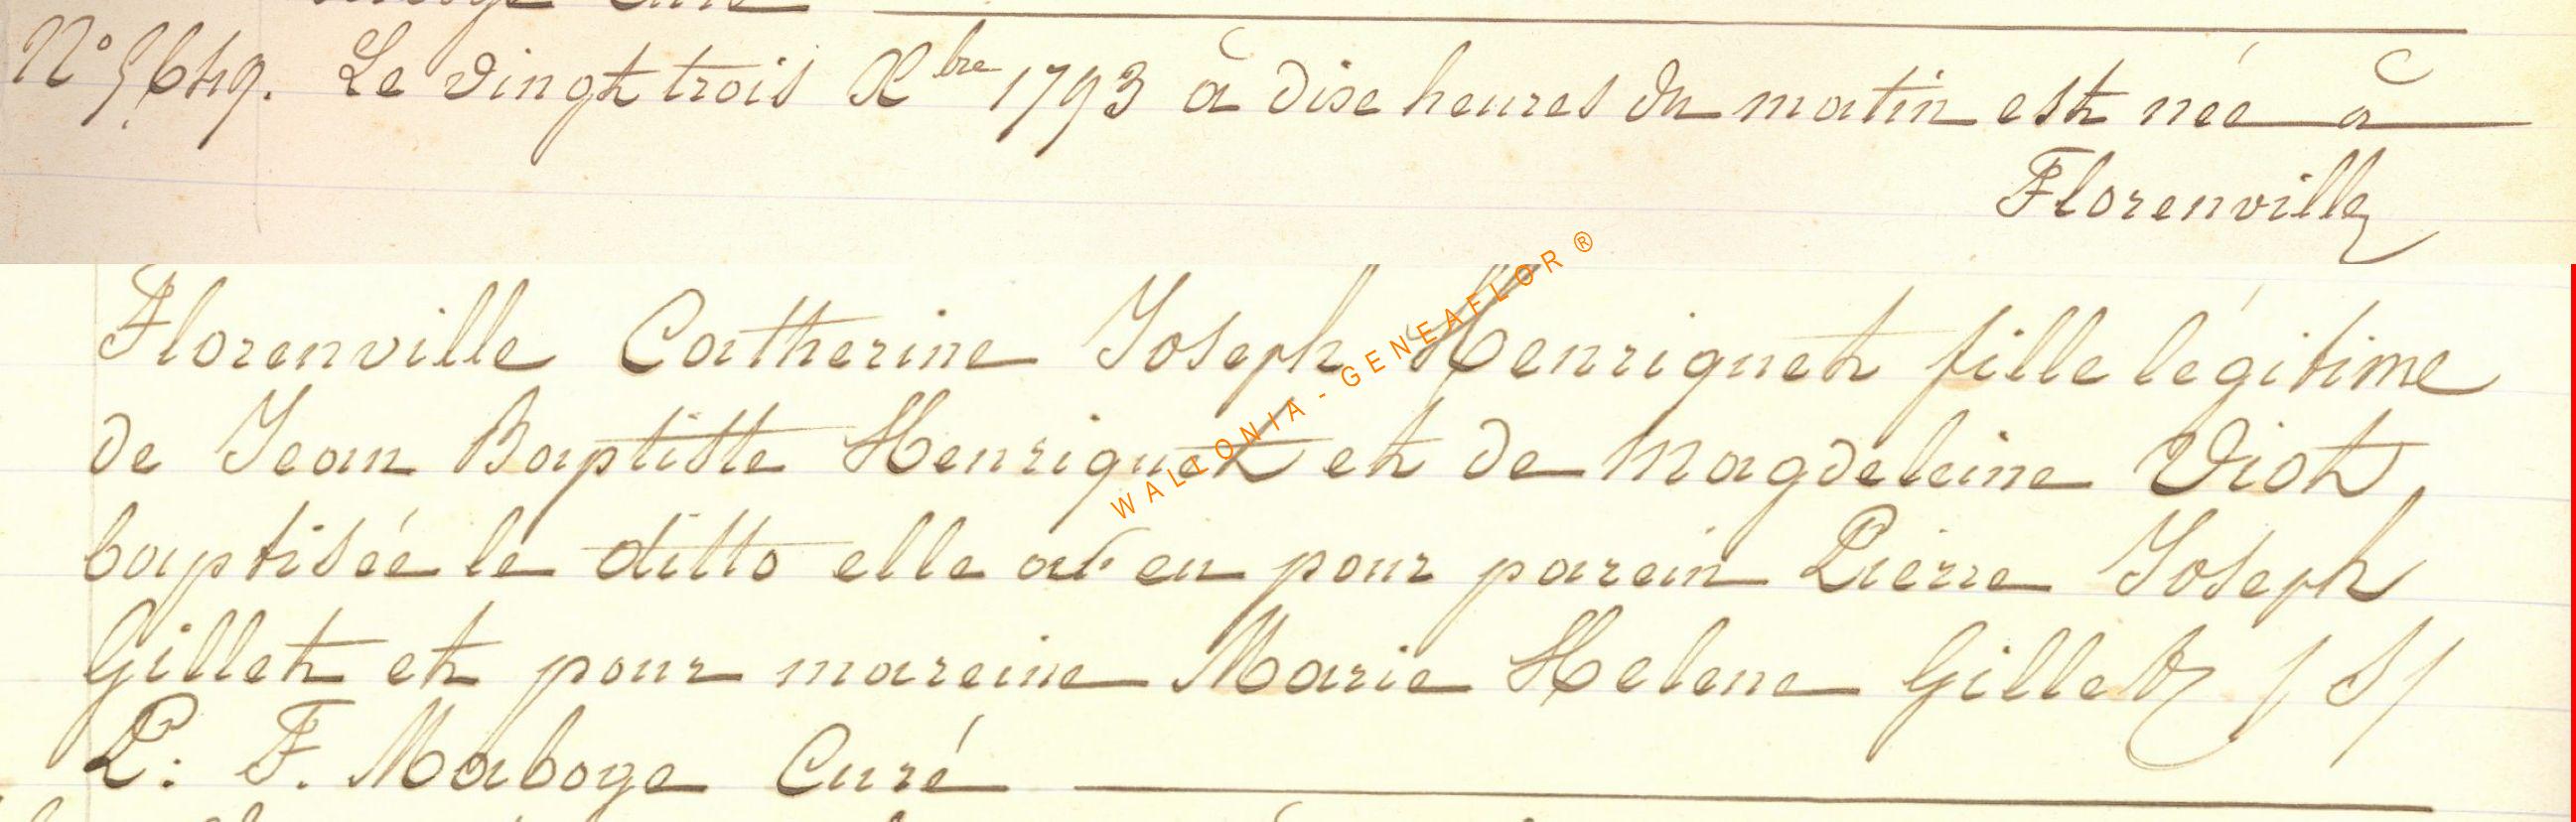 N° 5649. Le vingt trois Xbre 1793 à dix heures du matin est née à
Florenville
Florenville Catherine Joseph Henriquet fille légitime
de Jean Baptiste Henriquet et de Magdeleine Viot,
baptisée le ditto elle at eu pour parein Pierre Joseph
Gillet et pour mareine Marie Helene Gillet /S/
P: F. Maboge Curé
WALLONIA - GENEAFLOR ®